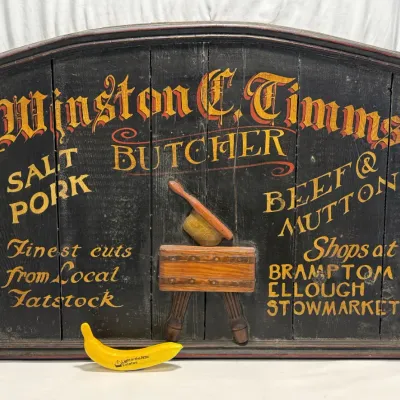 Winston C. Timms
BUTCHER
SALT
PORK
BEEF &
MUTTON
Finest cuts
from Local
Fatstock
Shops at
BRAMPTOM
ELLOUGH
STOWMARKET